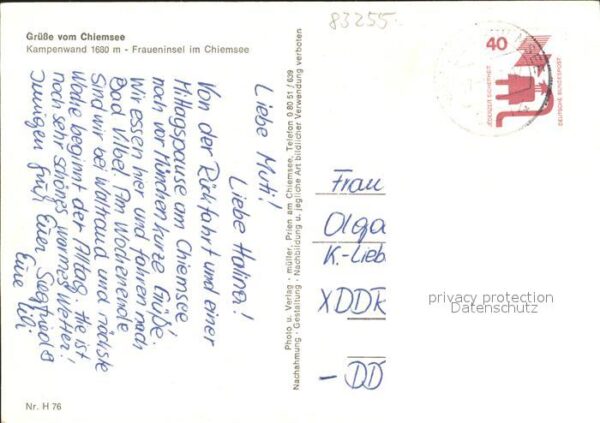 83255
Grüße vom Chiemsee
Kampenwand 1680 m - Fraueninsel im Chiemsee
Liebe Muti!
Liebe Halina!
Von der Rückfahrt und einer
Mittagspause am Chiemsee
noch vor München kurze Grüße.
Wir essen hier und fahren nach
Bad Vilbel. Am Wochenende
Sind wir bei Waltraud und nächste
Woche beginnt der Alltag. Hie ist
noch sehr schönes warmes Wetter!
Euer Siegfried &
Eure
Photo u. Verlag · müller, Prien am Chiemsee, Telefon 0 80 51 / 639
Nachahmung · Gestaltung · Nachbildung u. jegliche Art bildlicher Verwendung verboten
40
JEDERZEIT SICHERHEIT
DEUTSCHE BUNDESPOST
Frau
Olga
K.-Lieb
XDDR
- DD
privacy protection
Datenschutz
Nr. H 76